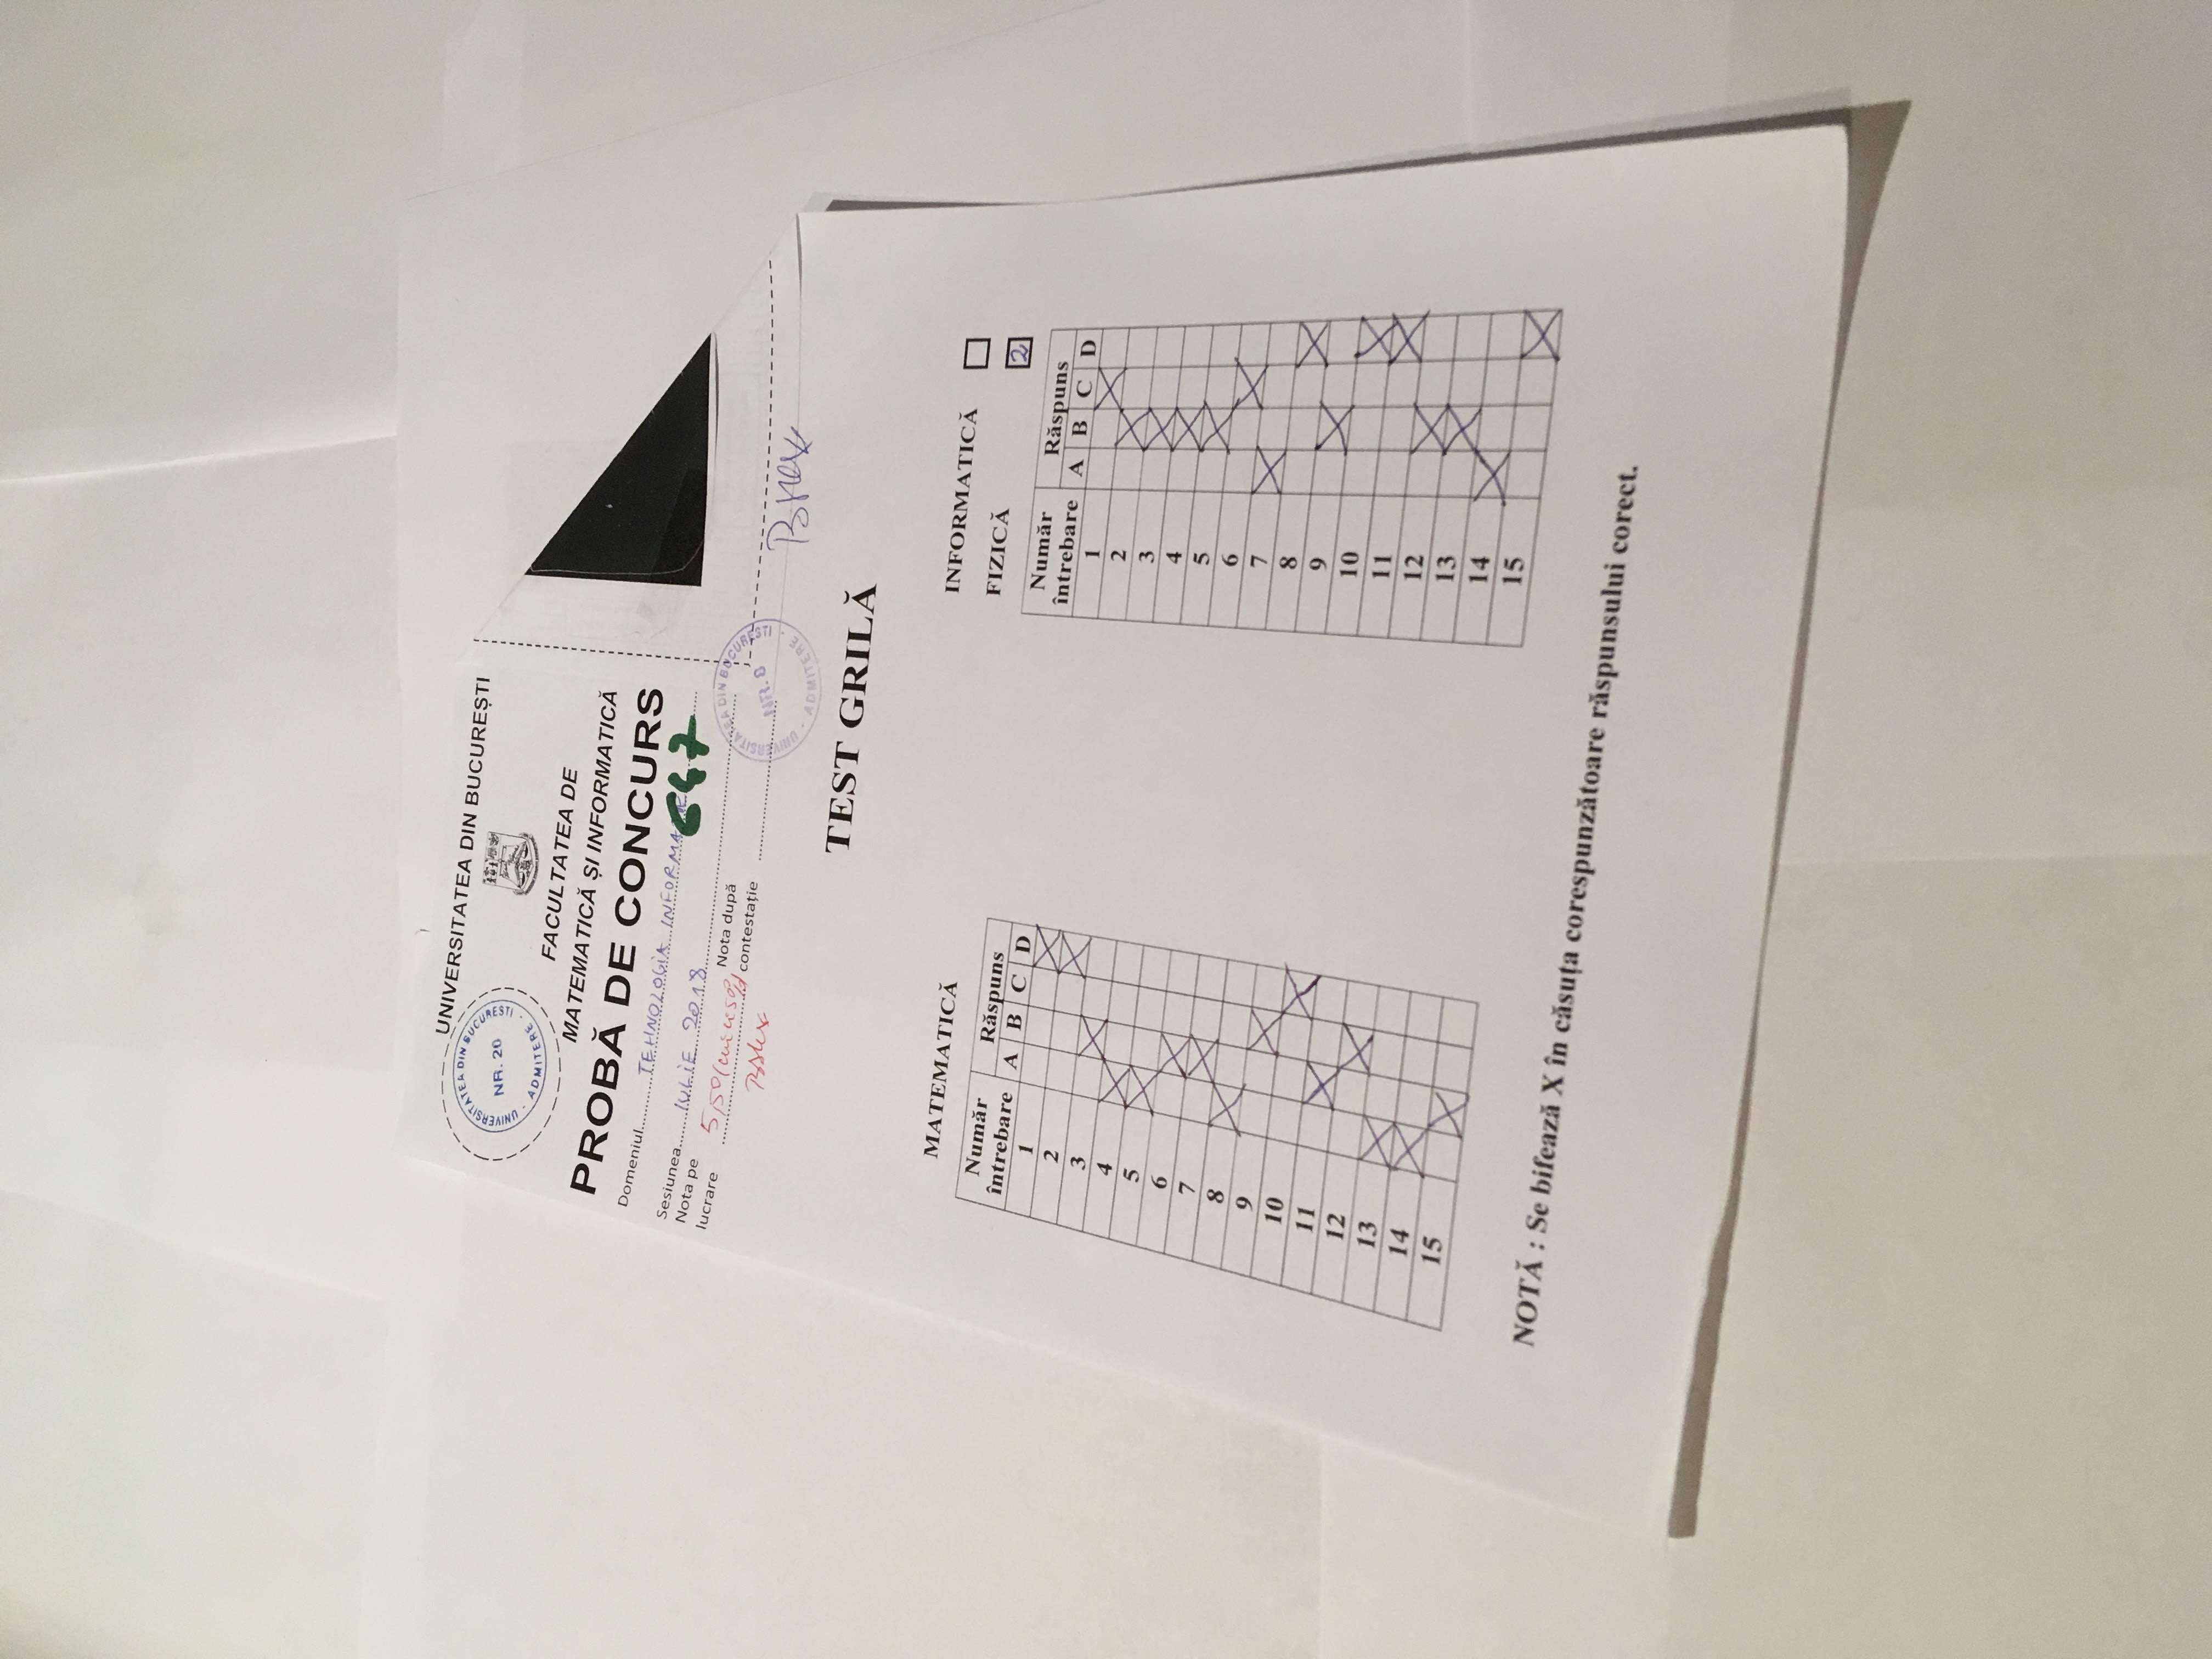 UNIVERSITATEA DIN BUCUREȘTI
UNIVERSITATEA DIN BUCUREȘTI
NR. 20
- ADMITERE -
FACULTATEA DE
MATEMATICĂ ȘI INFORMATICĂ
PROBĂ DE CONCURS
Domeniul TEHNOLOGIA
647
Sesiunea IULIE 2018
Nota pe
lucrare 5,50
Nota după
contestație
UNIVERSITATEA DIN BUCUREȘTI
NR. 8
- ADMITERE -
TEST GRILĂ
MATEMATICĂ
Număr
întrebare
Răspuns
A B C D
1 X
2 X
3 X
4 X
5 X
6 X
7 X
8 X
9 X
10 X
11 X
12 X
13 X
14 X
15 X
INFORMATICĂ
FIZICĂ 2
Număr
întrebare
Răspuns
A B C D
1 X
2 X
3 X
4 X
5 X
6 X
7 X
8 X
9 X
10 X
11 X
12 X
13 X
14 X
15 X
NOTĂ : Se bifează X în căsuța corespunzătoare răspunsului corect.